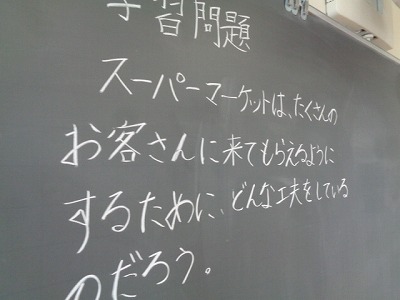 学習問題
スーパーマーケットは、たくさんの
お客さんに来てもらえるように
するために、どんな工夫をしている
のだろう。